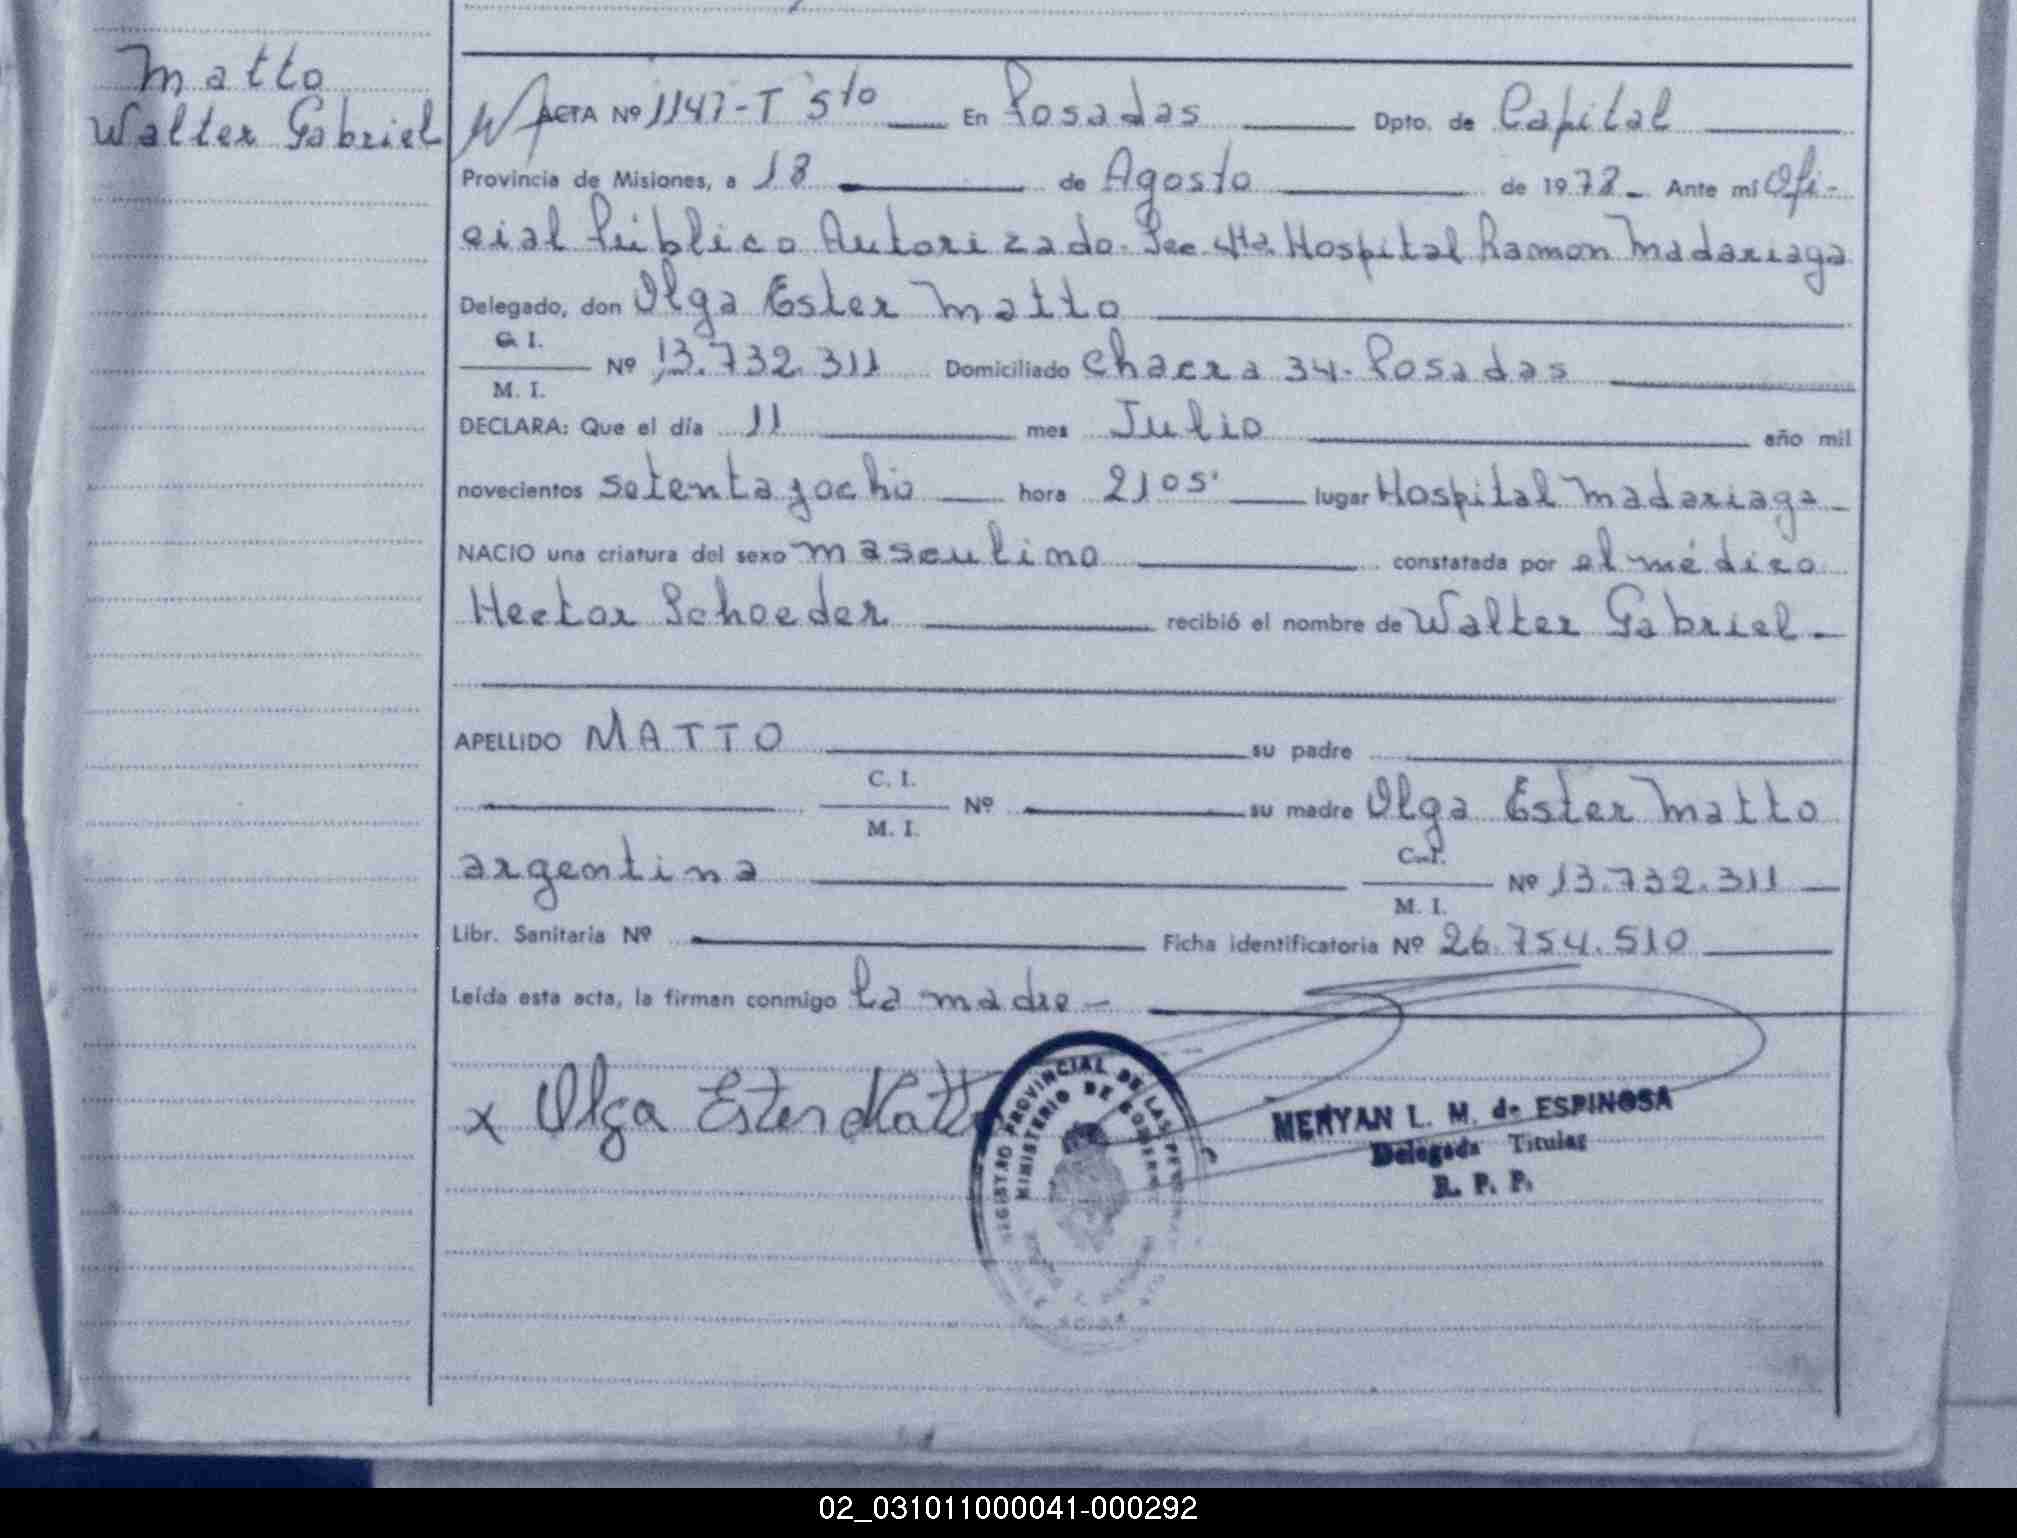 Matto
Walter Gabriel
ACTA Nº 1147-T 5to En Posadas Dpto. de Capital
Provincia de Misiones, a 18 de Agosto de 1978 Ante mí Ofi-
cial Público Autorizado. Sec. 4ta. Hospital Ramon Madariaga
Delegado, don Olga Ester Matto
C. I.
M. I. Nº 13.732.311 Domiciliado Chacra 34. Posadas
DECLARA: Que el día 11 mes Julio año mil
novecientos setenta y ocho hora 21 05' lugar Hospital Madariaga
NACIO una criatura del sexo masculino constatada por el médico
Hector Schoeder recibió el nombre de Walter Gabriel
APELLIDO MATTO su padre
C. I.
M. I. Nº su madre Olga Ester Matto
argentina C. I.
M. I. Nº 13.732.311
Libr. Sanitaria Nº Ficha identificatoria Nº 26.754.510
Leída esta acta, la firman conmigo la madre
x Olga Ester Matto
REGISTRO PROVINCIAL DE LAS PERSONAS
MINISTERIO DE GOBIERNO
MERYAN L. M. de ESPINOSA
Delegada Titular
R. P. P.
02_031011000041-000292